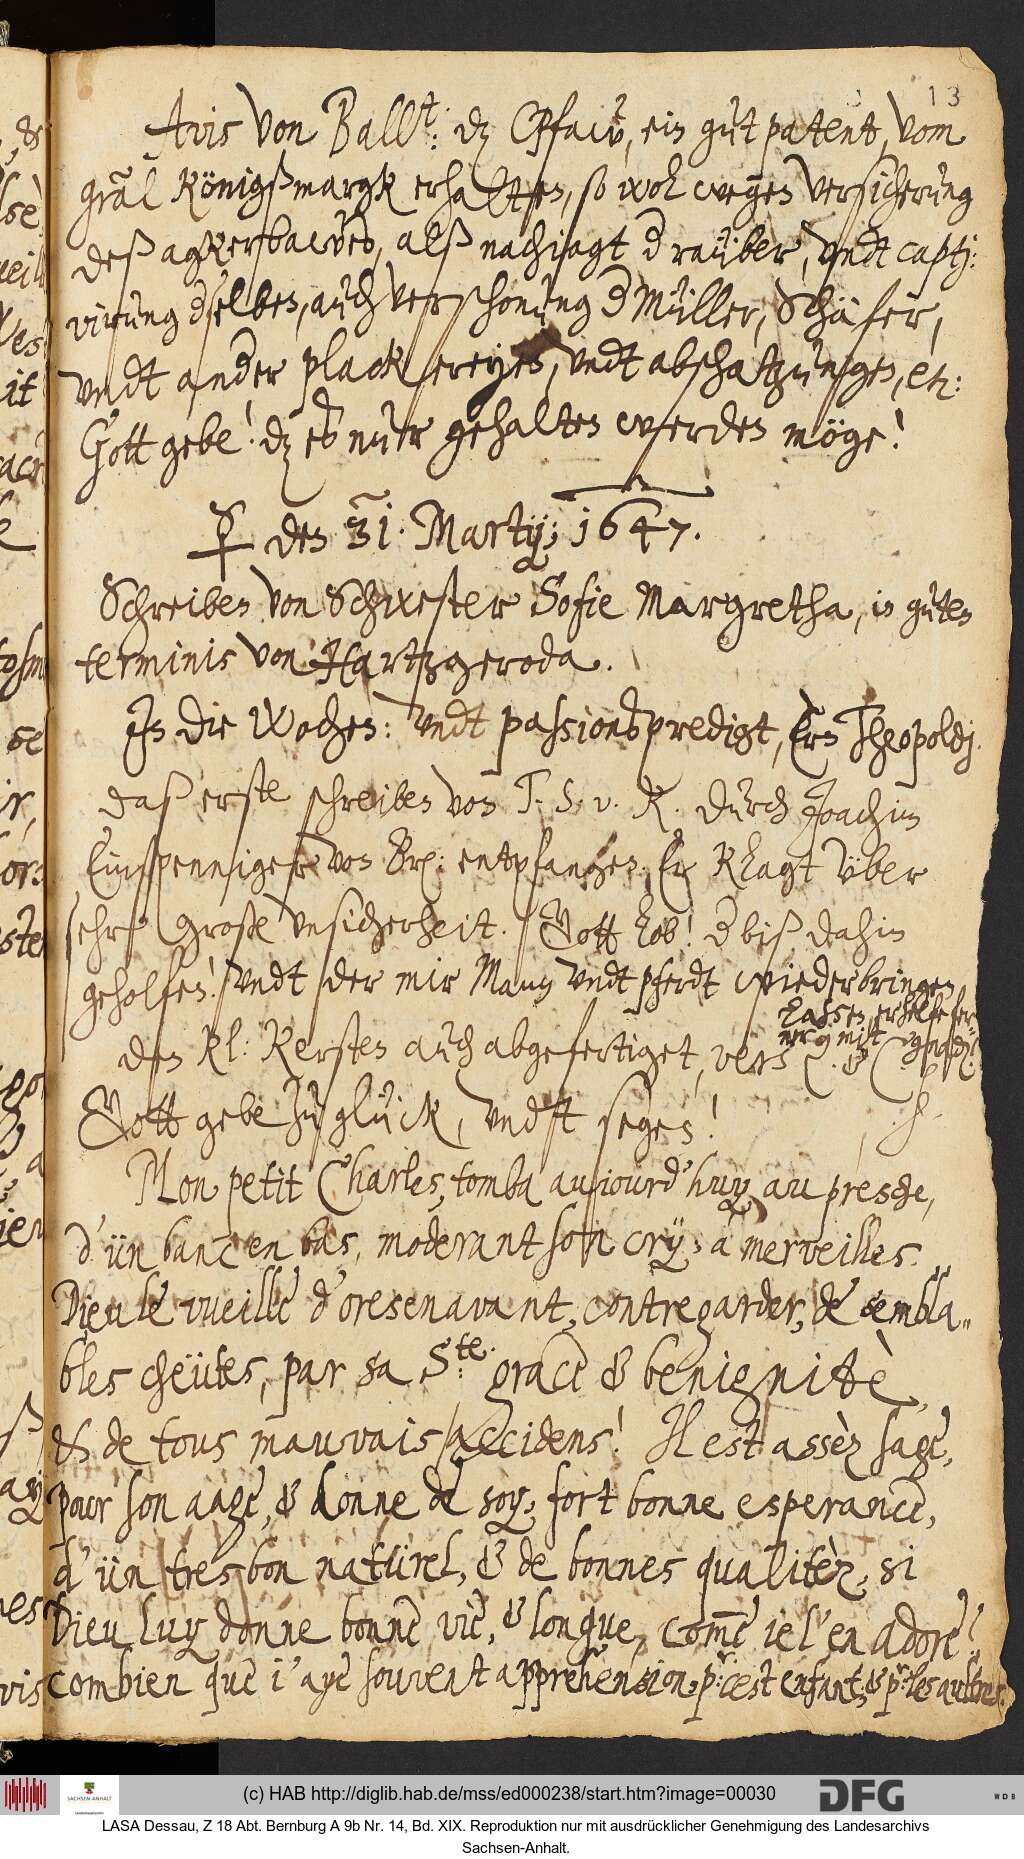 13
Avis von Ballst: dz Pfaw, ein gut patent, vom
gräl Königßmargk erhalten, so wol wegen versicherung
deß agkerbawes, alß nachjagt d raüber, vndt captj:
virung dselben, auch verschonung d Müller, Schäfer,
vndt ander plackereyen, vndt abschatzungen, etc:
Gott gebe! dz es nur gehalten werden möge!
den 31. Martij; 1647.
Schreiben von Schwester Sofie Margretha, in guten
terminis von Hartzgeroda.
In die Wochen: vndt passionspredigt, Ern Theopoldj.
Daß erste schreiben von T. S. v. K. durch Joachim
Einspenniger von entpfangen. Er klagt über
sehr große vnsicherheit. Gott lob! d biß dahin
geholfen! vndt der mir Mann vndt pferdt wiederbringen
laßen, er helfe fer-
ner mit gnad!
Den kl: Kersten auch abgefertiget, vers C. & C.
Gott gebe zu glück, vndt segen!
Mon petit Charles, tomba aujourd'huy, au presche,
d'ün banc en bas, moderant son cry, a merveilles.
Dieu le vueille d'oresenavant, contregarder, de sembla-
bles cheütes, par sa Ste. grace & benignitè,
& de tous mauvais accidens! Il est assèz sage,
pour son aage, & donne de soy, fort bonne esperance,
d'ün tres bon natürel, & de bonnes qualitèz, si
Dieu luy donne bonne vie, & longue, come ie l'en adore!
combien que i'aye souvent apprehension, pr: cest enfant, & pr: les aultres.
(c) HAB http://diglib.hab.de/mss/ed000238/start.htm?image=00030
SACHSEN-ANHALT
DFG
WDB
LASA Dessau, Z 18 Abt. Bernburg A 9b Nr. 14, Bd. XIX. Reproduktion nur mit ausdrücklicher Genehmigung des Landesarchivs
Sachsen-Anhalt.